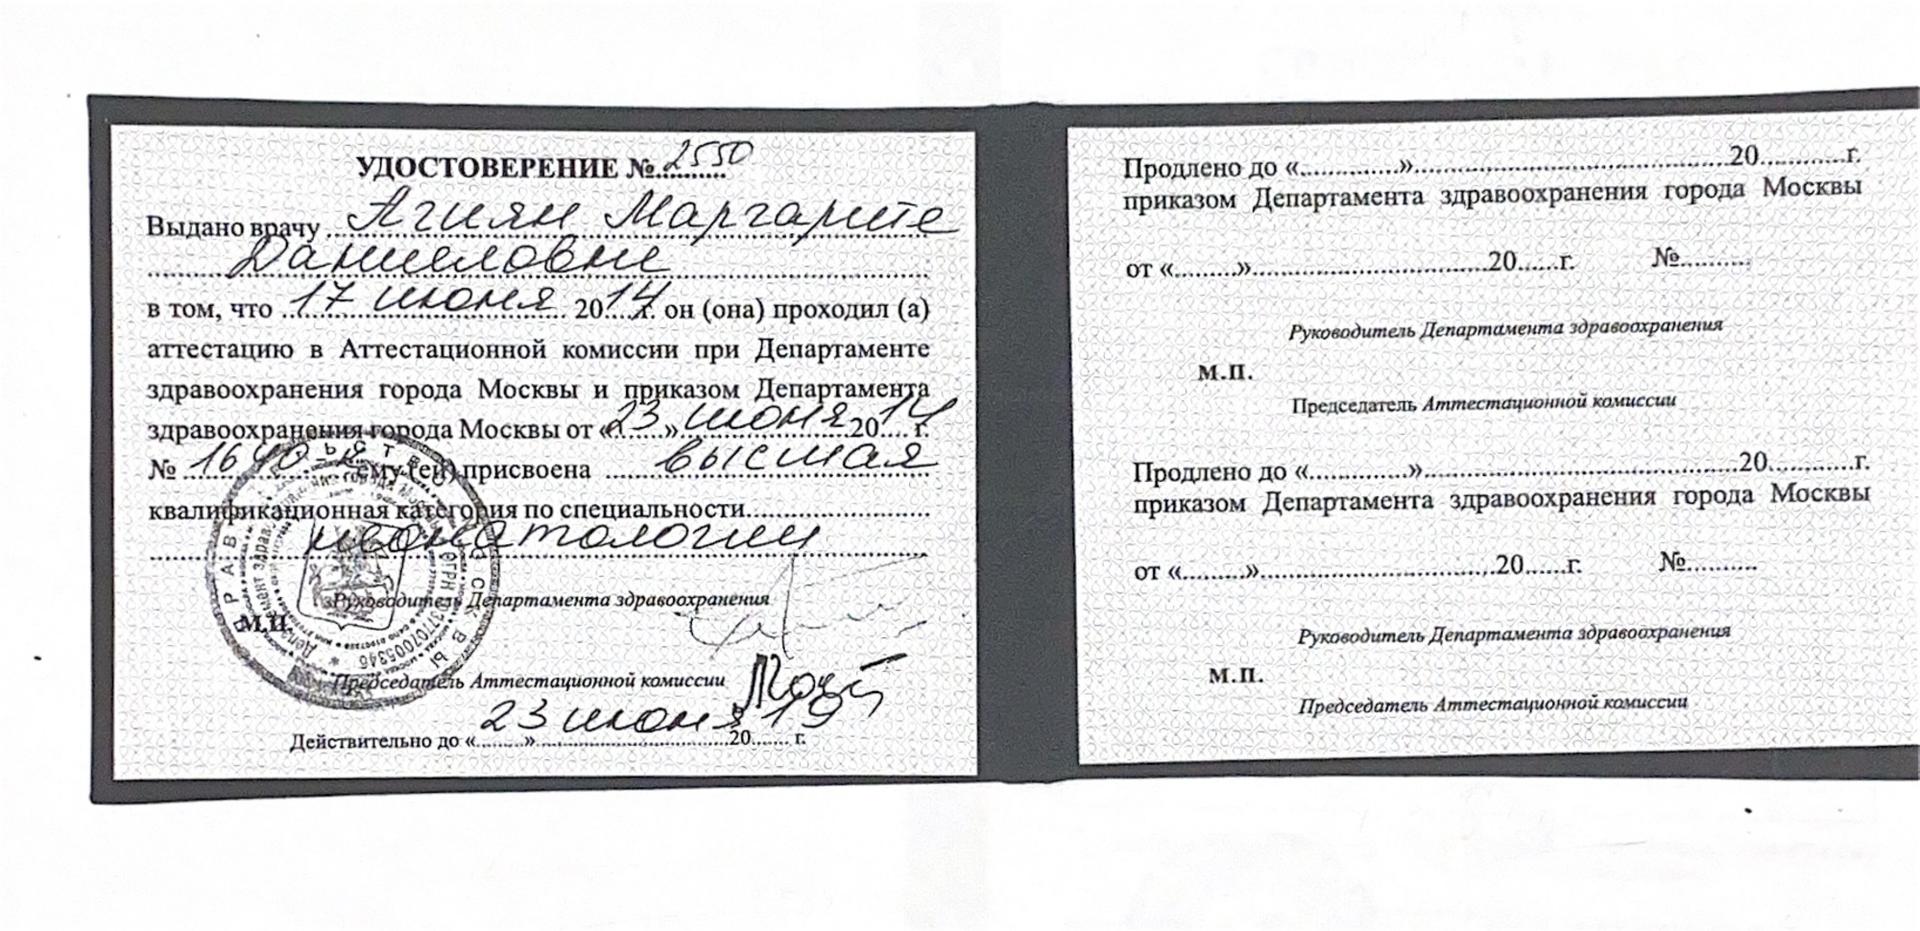 УДОСТОВЕРЕНИЕ № 2550
Выдано врачу Агиян Маргарите
Данииловне
в том, что 17 июня 2014 г. он (она) проходил (а)
аттестацию в Аттестационной комиссии при Департаменте
здравоохранения города Москвы и приказом Департамента
здравоохранения города Москвы от «23» июня 2014 г.
№ ему (ей) присвоена высшая
квалификационная категория по специальности
неонатологии
Руководитель Департамента здравоохранения
М.П.
Председатель Аттестационной комиссии
Действительно до «23» июня 2019 г.
Продлено до «..............»..............20............г.
приказом Департамента здравоохранения города Москвы
от «.........»..............20......г. №..........
Руководитель Департамента здравоохранения
М.П.
Председатель Аттестационной комиссии
Продлено до «..............»..............20............г.
приказом Департамента здравоохранения города Москвы
от «.........»..............20......г. №..........
Руководитель Департамента здравоохранения
М.П.
Председатель Аттестационной комиссии